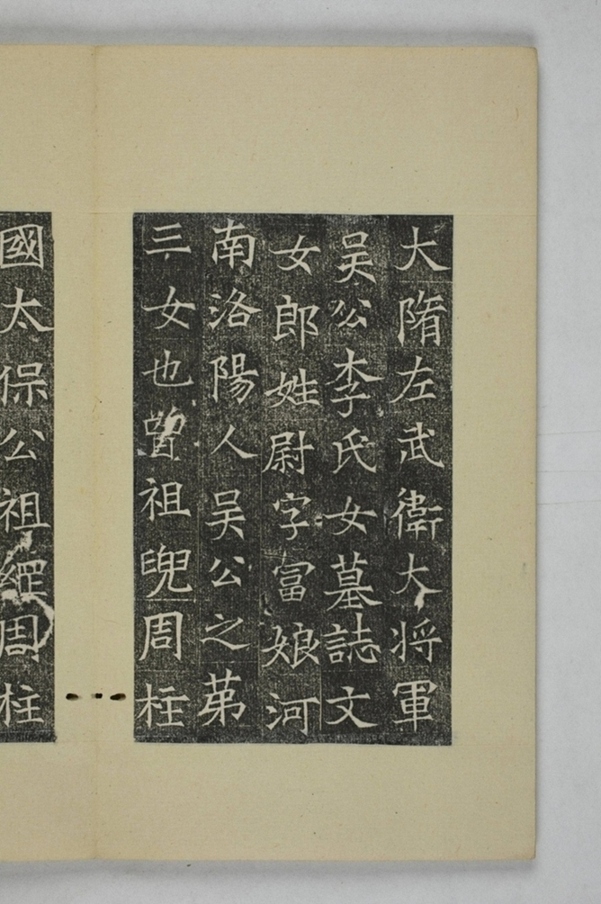 大隋左武衛大将軍
吴公李氏女墓誌文
女郎姓尉字富娘河
南洛陽人吴公之苐
三女也曽祖兜周柱
國太保公祖綱周柱